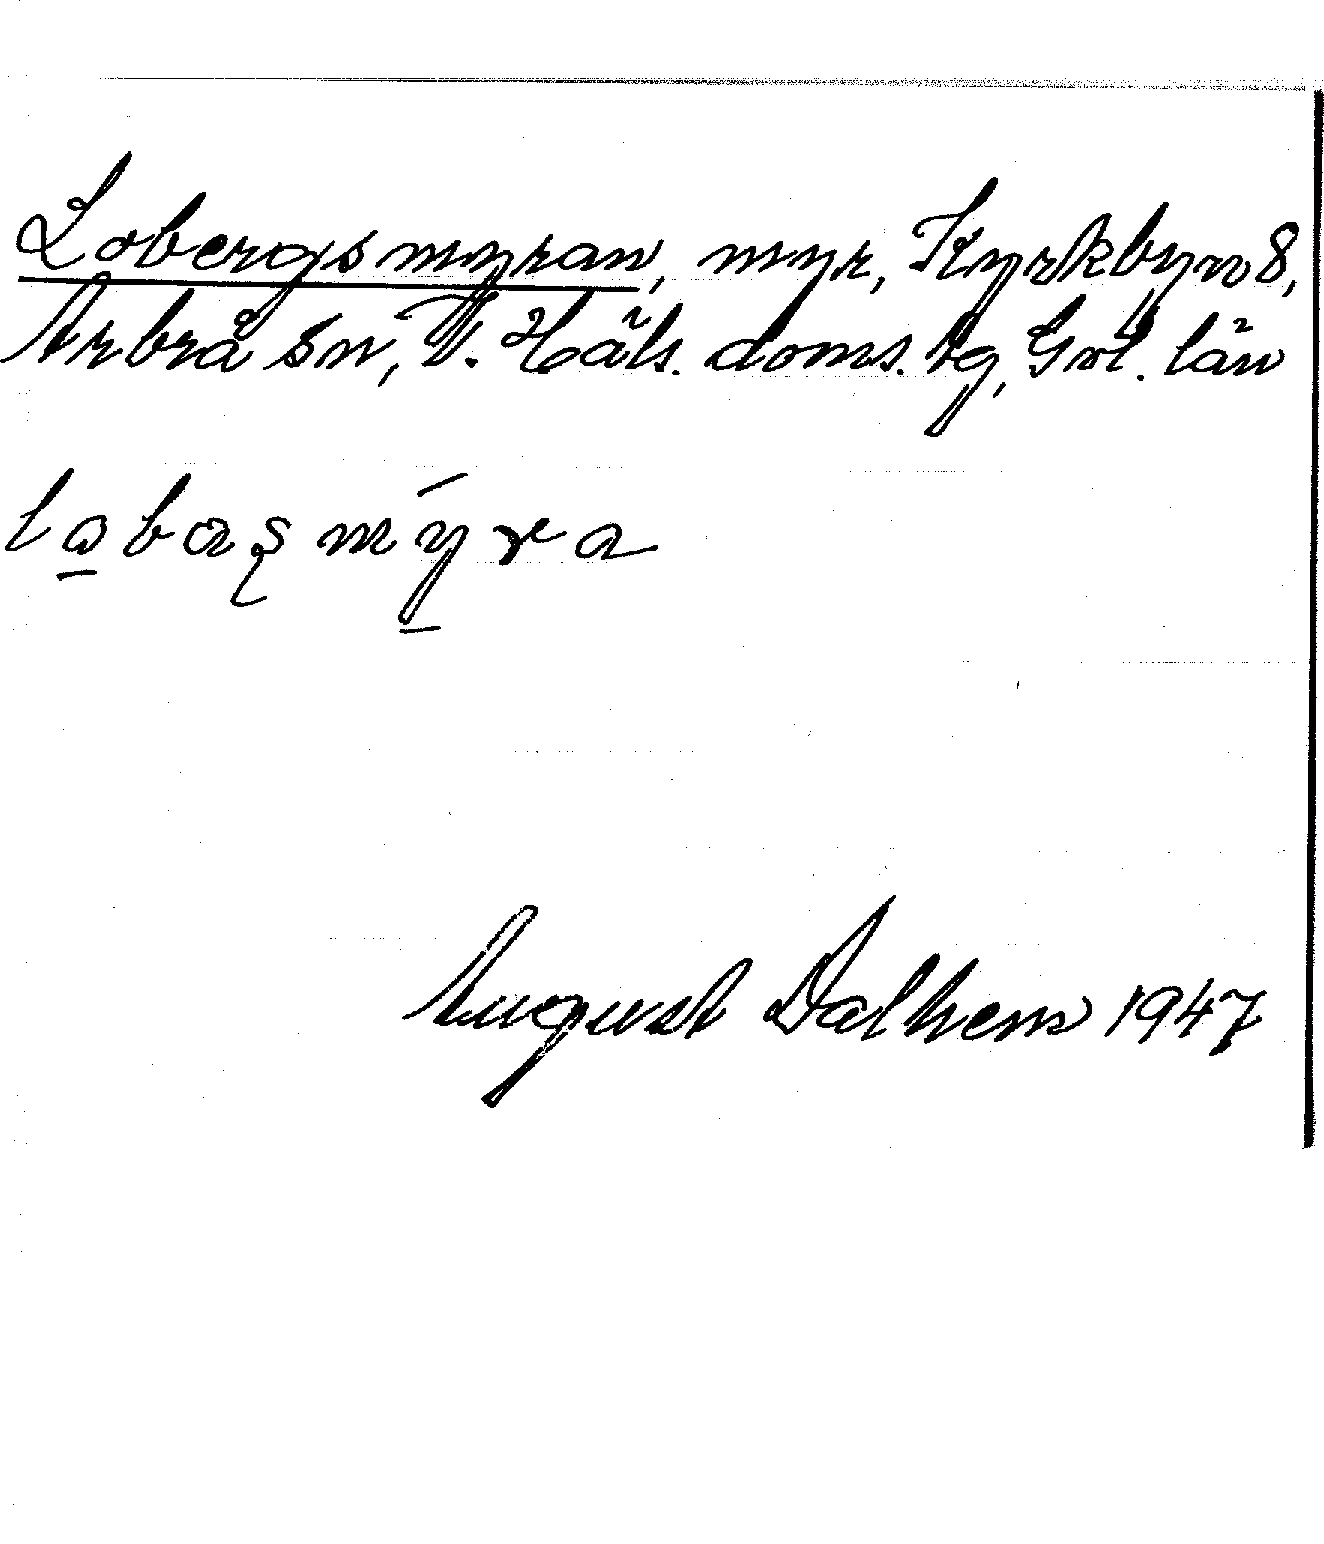 Lobergsmyran, myr, Kyrkbyn 8,
Arbrå sn, V. Häls. doms. tg, Gvl. län
lobasmýra
August Dalhem 1947